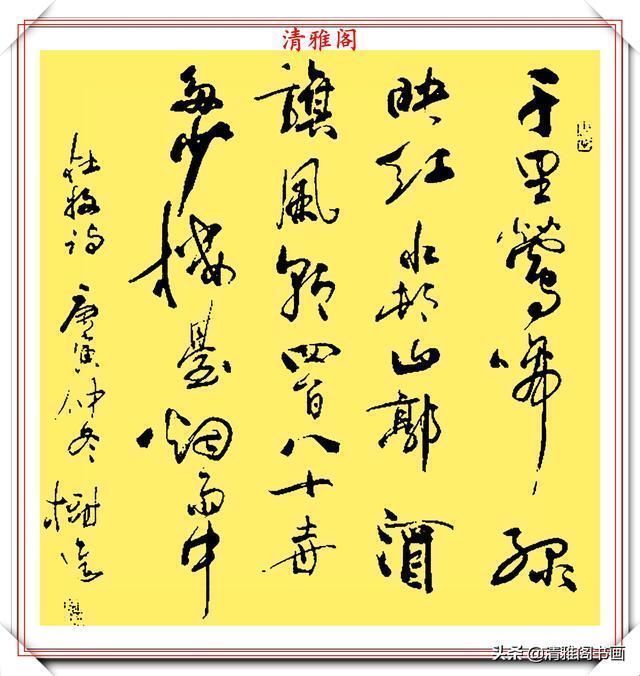 清雅阁
千里鶯啼绿
映红水邨山郭酒
旗風朝四百八十寺
多少楼臺烟雨中
杜牧诗 庚寅仲冬
头条@清雅阁书画